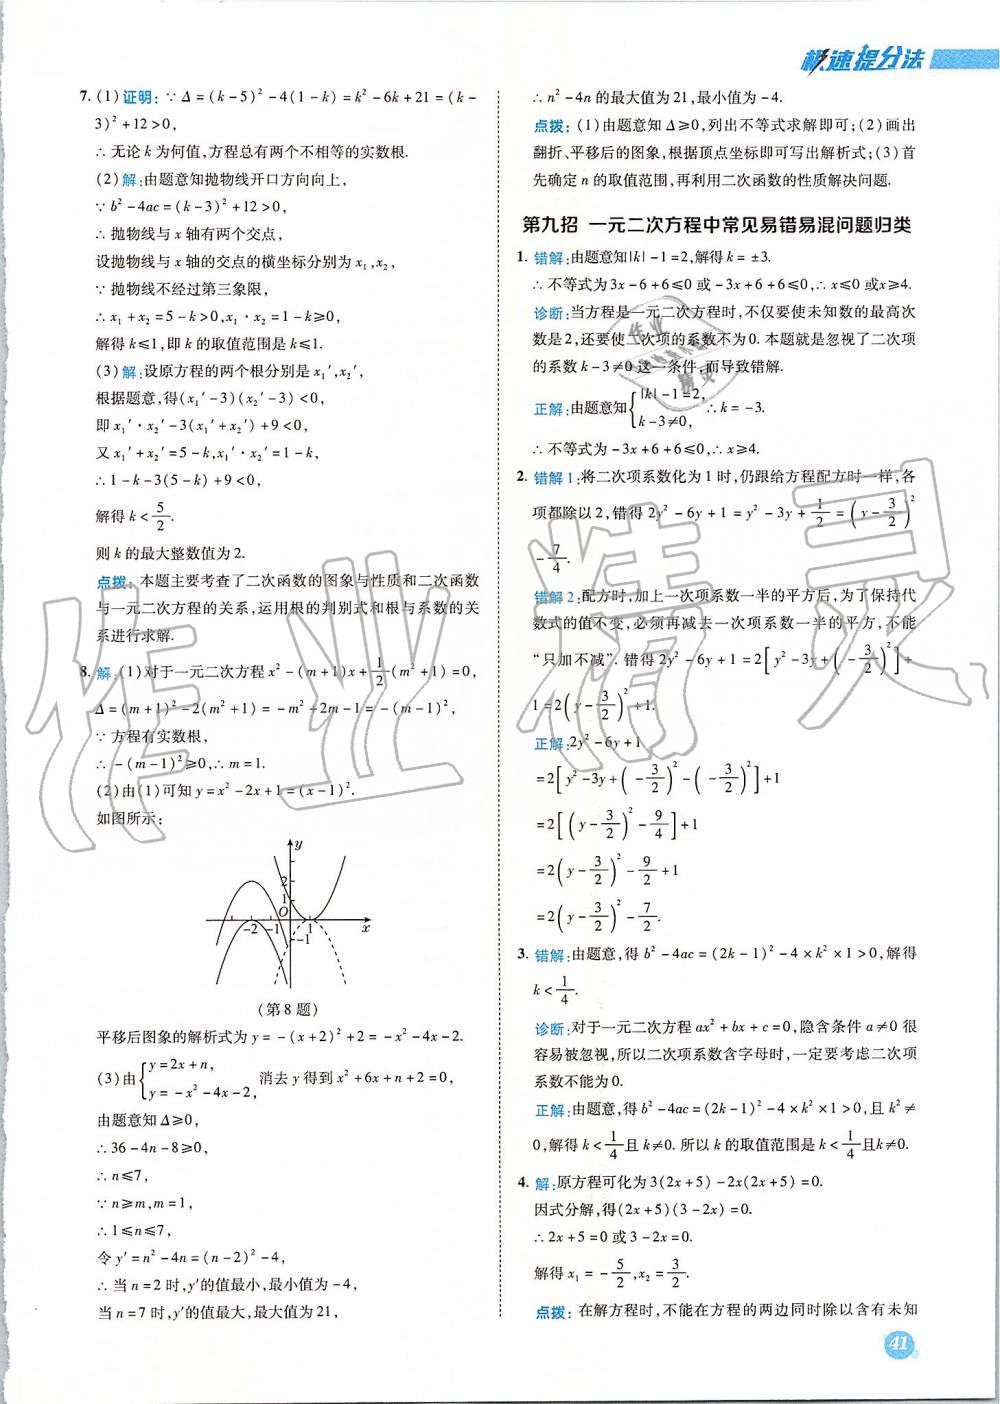 极速提分法
7. (1)证明:∵Δ=(k-5)²-4(1-k)=k²-6k+21=(k-
3)²+12>0,
∴无论k为何值,方程总有两个不相等的实数根.
(2)解:由题意知抛物线开口方向向上,
∵b²-4ac=(k-3)²+12>0,
∴抛物线与x轴有两个交点,
设抛物线与x轴的交点的横坐标分别为x₁,x₂,
∵抛物线不经过第三象限,
∴x₁+x₂=5-k>0,x₁·x₂=1-k≥0,
解得k≤1,即k的取值范围是k≤1.
(3)解:设原方程的两个根分别是x₁′,x₂′,
根据题意,得(x₁′-3)(x₂′-3)<0,
即x₁′·x₂′-3(x₁′+x₂′)+9<0,
又x₁′+x₂′=5-k,x₁′·x₂′=1-k,
∴1-k-3(5-k)+9<0,
解得k<5/2.
则k的最大整数值为2.
点拨:本题主要考查了二次函数的图象与性质和二次函数
与一元二次方程的关系,运用根的判别式和根与系数的关
系进行求解.
8. 解:(1)对于一元二次方程x²-(m+1)x+1/2(m²+1)=0,
Δ=(m+1)²-2(m²+1)=-m²+2m-1=-(m-1)²,
∵方程有实数根,
∴-(m-1)²≥0,∴m=1.
(2)由(1)可知y=x²-2x+1=(x-1)².
如图所示:
y
2
1
O
-2 -1 1 x
-1
(第8题)
平移后图象的解析式为y=-(x+2)²+2=-x²-4x-2.
(3)由{y=2x+n, y=-x²-4x-2, 消去y得到x²+6x+n+2=0,
由题意知Δ≥0,
∴36-4n-8≥0,
∴n≤7,
∵n≥m,m=1,
∴1≤n≤7,
令y′=n²-4n=(n-2)²-4,
∴当n=2时,y′的值最小,最小值为-4,
当n=7时,y′的值最大,最大值为21,
∴n²-4n的最大值为21,最小值为-4.
点拨:(1)由题意知Δ≥0,列出不等式求解即可;(2)画出
翻折、平移后的图象,根据顶点坐标即可写出解析式;(3)首
先确定n的取值范围,再利用二次函数的性质解决问题.
第九招 一元二次方程中常见易错易混问题归类
1. 错解:由题意知|k|-1=2,解得k=±3.
∴不等式为3x-6+6≤0或-3x+6+6≤0,∴x≤0或x≥4.
诊断:当方程是一元二次方程时,不仅要使未知数的最高次
数是2,还要使二次项的系数不为0.本题就是忽视了二次项
的系数k-3≠0这一条件,而导致错解.
正解:由题意知{|k|-1=2, k-3≠0, ∴k=-3.
∴不等式为-3x+6+6≤0,∴x≥4.
2. 错解1:将二次项系数化为1时,仍跟给方程配方时一样,各
项都除以2,错得2y²-6y+1=y²-3y+1/2=(y-3/2)²
-7/4.
错解2:配方时,加上一次项系数一半的平方后,为了保持代
数式的值不变,必须再减去一次项系数一半的平方,不能
“只加不减”.错得2y²-6y+1=2[y²-3y+(-3/2)²]+
1=2(y-3/2)²+1.
正解:2y²-6y+1
=2[y²-3y+(-3/2)²-(-3/2)²]+1
=2[(y-3/2)²-9/4]+1
=2(y-3/2)²-9/2+1
=2(y-3/2)²-7/2.
3. 错解:由题意,得b²-4ac=(2k-1)²-4×k²×1>0,解得
k<1/4.
诊断:对于一元二次方程ax²+bx+c=0,隐含条件a≠0很
容易被忽视,所以二次项系数含字母时,一定要考虑二次项
系数不能为0.
正解:由题意,得b²-4ac=(2k-1)²-4×k²×1>0,且k²≠
0,解得k<1/4且k≠0.所以k的取值范围是k<1/4且k≠0.
4. 解:原方程可化为3(2x+5)-2x(2x+5)=0.
因式分解,得(2x+5)(3-2x)=0.
∴2x+5=0或3-2x=0.
解得x₁=-5/2,x₂=3/2.
点拨:在解方程时,不能在方程的两边同时除以含有未知
41
作业精灵